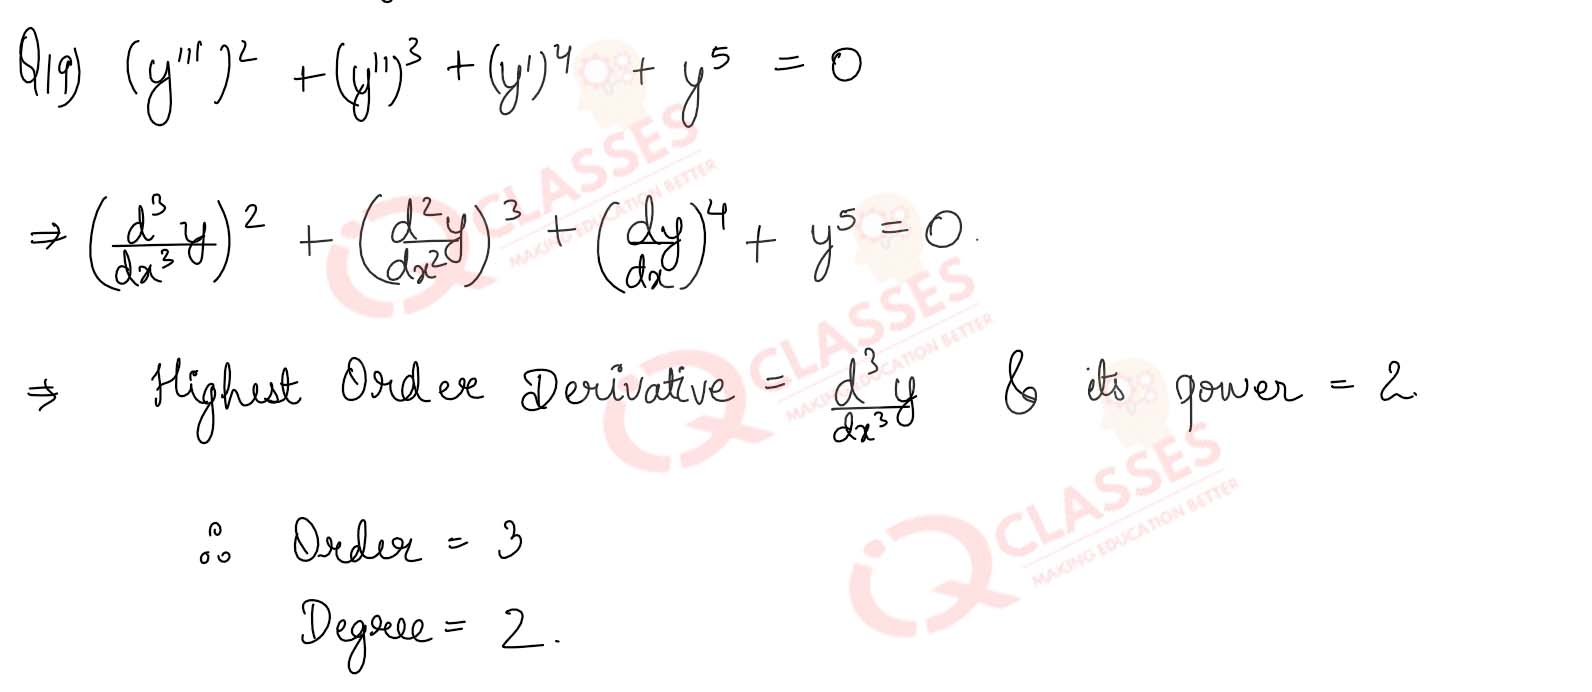 Q19) (y''')² + (y'')³ + (y')⁴ + y⁵ = 0
⇒ (d³y/dx³)² + (d²y/dx²)³ + (dy/dx)⁴ + y⁵ = 0.
⇒ Highest Order Derivative = d³y/dx³ & its power = 2.
∴ Order = 3
Degree = 2.
iQ CLASSES
MAKING EDUCATION BETTER
iQ CLASSES
MAKING EDUCATION BETTER
iQ CLASSES
MAKING EDUCATION BETTER